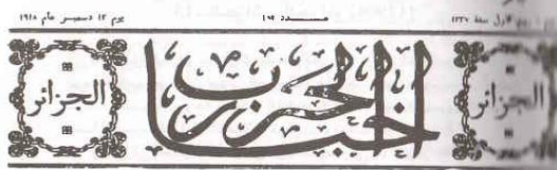 ربيع الاول سنة ١٣٣٧ عدد ١٠٢ يوم ١٢ دسمبر عام ١٩١٨
الجزائر اخبار الحرب الجزائر